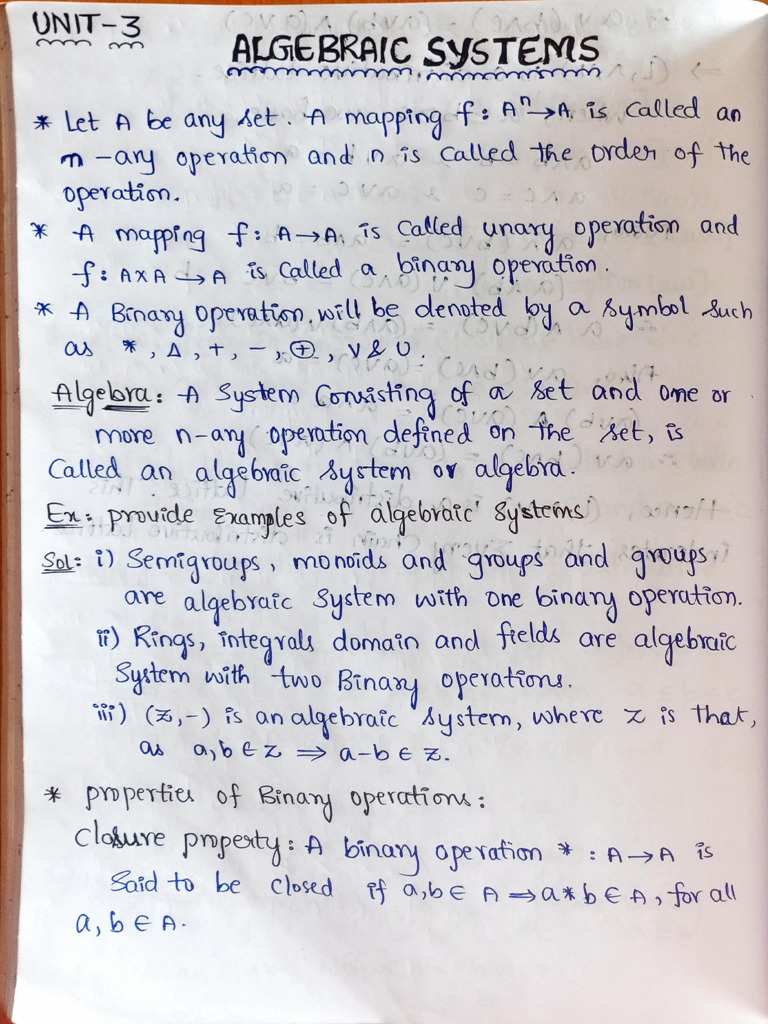 UNIT-3
ALGEBRAIC SYSTEMS
* Let A be any set. A mapping f: Aⁿ→A is called an
n-ary operation and n is called the order of the
operation.
* A mapping f: A→A, is called unary operation and
f: A×A→A is called a binary operation.
* A Binary operation will be denoted by a symbol such
as *, Δ, +, -, ⊕, ∨ & ∪.
Algebra: A system consisting of a set and one or
more n-ary operation defined on the set, is
called an algebraic system or algebra.
Ex: provide Examples of algebraic systems
Sol: i) Semigroups, monoids and groups and groups
are algebraic system with one binary operation.
ii) Rings, integrals domain and fields are algebraic
system with two Binary operations.
iii) (Z,-) is an algebraic system, where Z is that,
as a,b ∈ Z ⇒ a-b ∈ Z.
* properties of Binary operations:
Closure property: A binary operation * : A→A is
said to be closed if a,b ∈ A ⇒ a*b ∈ A, for all
a,b ∈ A.